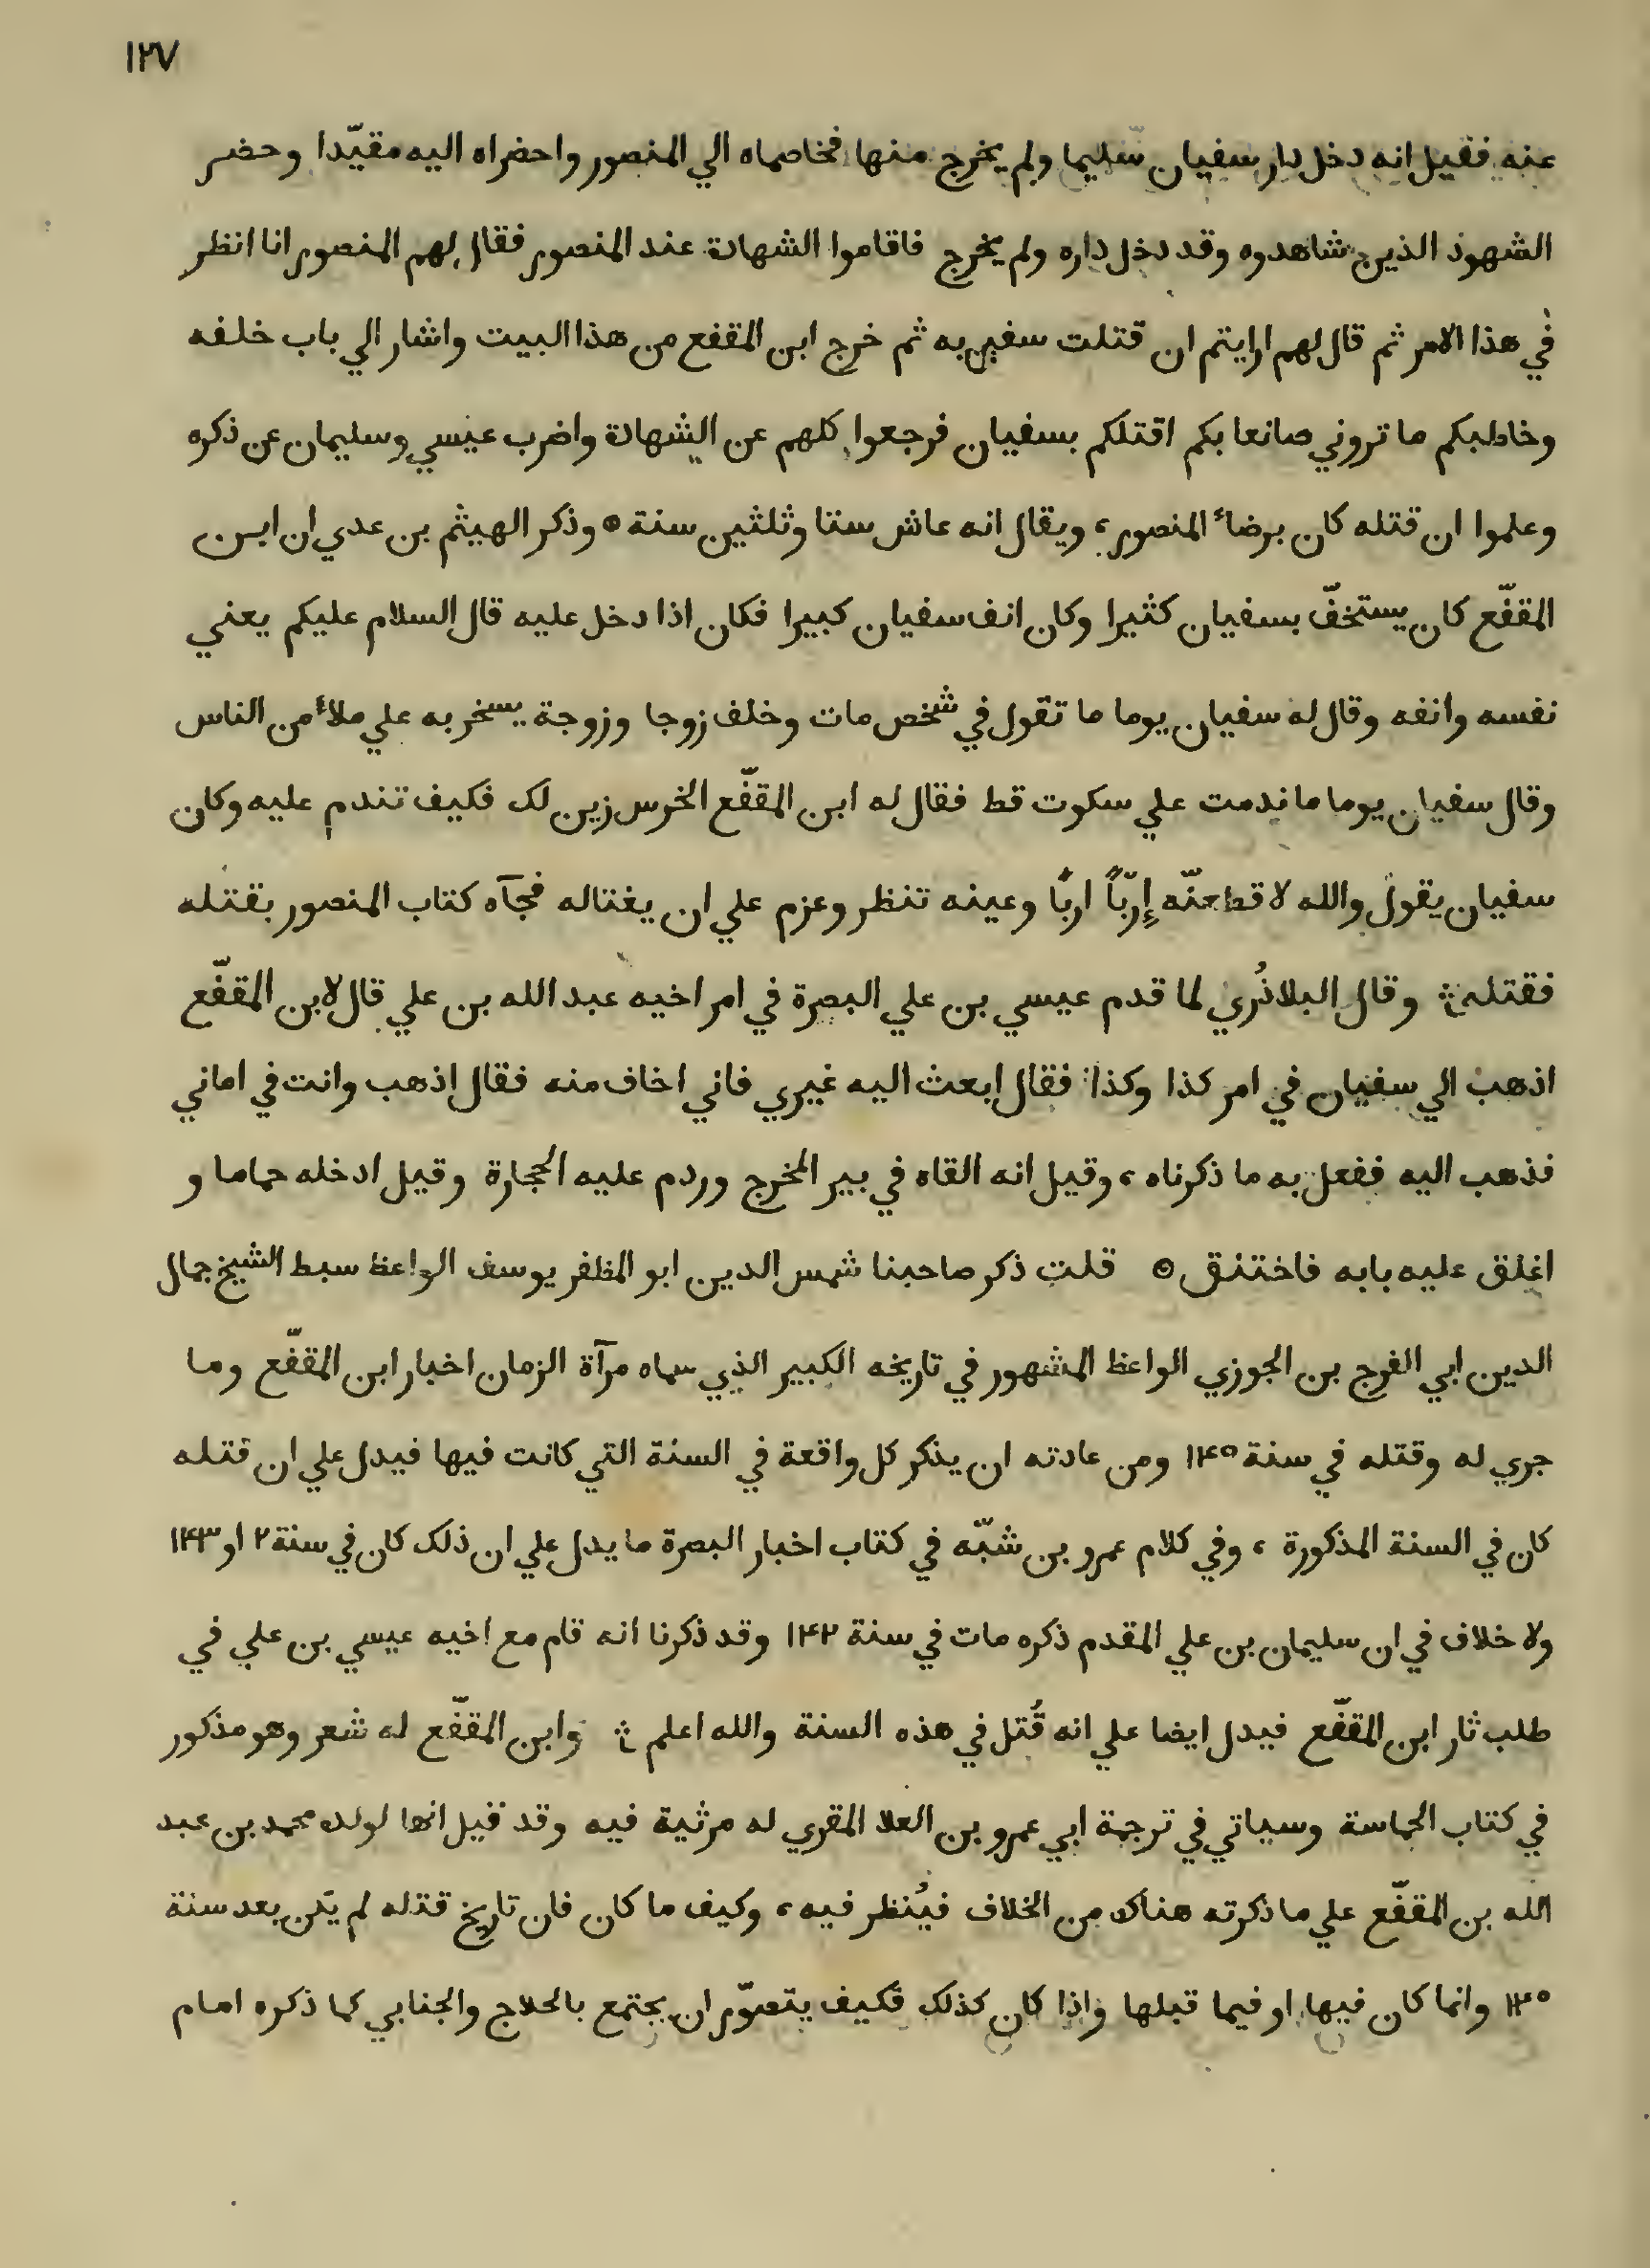 ١٢٧
عنه فقيل انه دخل دار سفيان سليما ولم يخرج منها فخاصماه الي المنصور واحضراه اليه مقيّدا وحضر
الشهود الذين شاهدوه وقد دخل داره ولم يخرج فاقاموا الشهادة عند المنصور فقال لهم المنصور انا انظر
في هذا الامر ثم قال لهم ارايتم ان قتلت سفين به ثم خرج ابن المقفع من هذا البيت واشار الي باب خلفه
وخاطبكم ما تروني صانعا بكم اقتلكم بسفيان فرجعوا كلهم عن الشهادة واضرب عيسي وسليمان عن ذكره
وعلموا ان قتله كان برضاء المنصور، ويقال انه عاش ستا وثلثين سنة ۞ وذكر الهيثم بن عدي ان ابن
المقفّع كان يستخفّ بسفيان كثيرا وكان انف سفيان كبيرا فكان اذا دخل عليه قال السلام عليكم يعني
نفسه وانفه وقال له سفيان يوما ما تقول في شخص مات وخلف زوجا وزوجة يسخر به علي ملاء من الناس
وقال سفيان يوما ما ندمت علي سكوت قط فقال له ابن المقفّع الخرس زين لك فكيف تندم عليه وكان
سفيان يقول والله لاقطعنّه إِرّبًا اربًا وعينه تنظر وعزم علي ان يغتاله فجآه كتاب المنصور بقتله
فقتله وقال البلاذُري لما قدم عيسي بن علي البصرة في امر اخيه عبد الله بن علي قال لابن المقفّع
اذهب الي سفيان في امر كذا وكذا فقال ابعث اليه غيري فاني اخاف منه فقال اذهب وانت في اماني
فذهب اليه ففعل به ما ذكرناه، وقيل انه القاه في بير المخرج وردم عليه الحجارة وقيل ادخله حماما و
اغلق عليه بابه فاختنق ۞ قلت ذكر صاحبنا شمس الدين ابو المظفر يوسف الواعظ سبط الشيخ جمال
الدين ابي الفرج بن الجوزي الواعظ المشهور في تاريخه الكبير الذي سماه مرآة الزمان اخبار ابن المقفّع وما
جري له وقتله في سنة ١۴٥ ومن عادته ان يذكر كل واقعة في السنة التي كانت فيها فيدل علي ان قتله
كان في السنة المذكورة، وفي كلام عمرو بن شبّه في كتاب اخبار البصرة ما يدل علي ان ذلك كان في سنة ٢ او ١۴٣
ولا خلاف في ان سليمان بن علي المقدم ذكره مات في سنة ١۴٢ وقد ذكرنا انه قام مع اخيه عيسي بن علي في
طلب ثار ابن المقفّع فيدل ايضا علي انه قُتل في هذه السنة والله اعلم وابن المقفّع له شعر وهو مذكور
في كتاب الحماسة وسياتي في ترجمة ابي عمرو بن العلا المقري له مرثية فيه وقد قيل انها لولده محمد بن عبد
الله بن المقفّع علي ما ذكرته هناك من الخلاف فيُنظر فيه، وكيف ما كان فان تاريخ قتله لم يكن بعد سنة
١۴٥ وانما كان فيها او فيما قبلها واذا كان كذلك فكيف يتصوّر ان يجتمع بالحلاج والجنابي كما ذكره امام